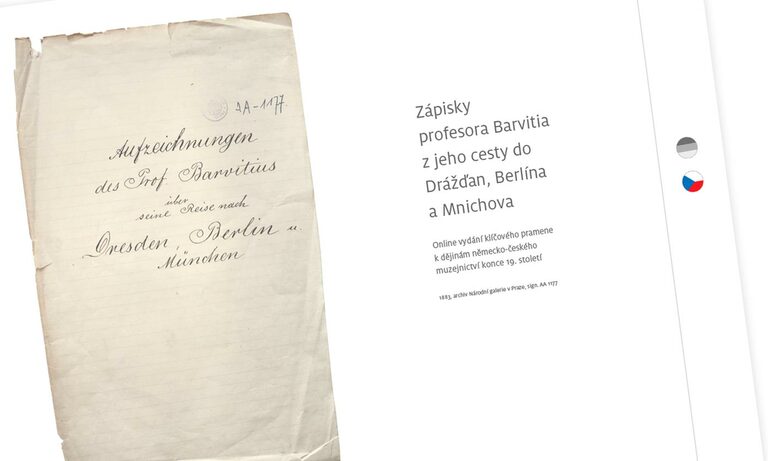 AA-1177
Aufzeichnungen
des Prof. Barvitius
über
seine Reise nach
Dresden, Berlin u.
München
Zápisky
profesora Barvitia
z jeho cesty do
Drážďan, Berlína
a Mnichova
Online vydání klíčového pramene
k dějinám německo-českého
muzejnictví konce 19. století
1883, archiv Národní galerie v Praze, sign. AA 1177